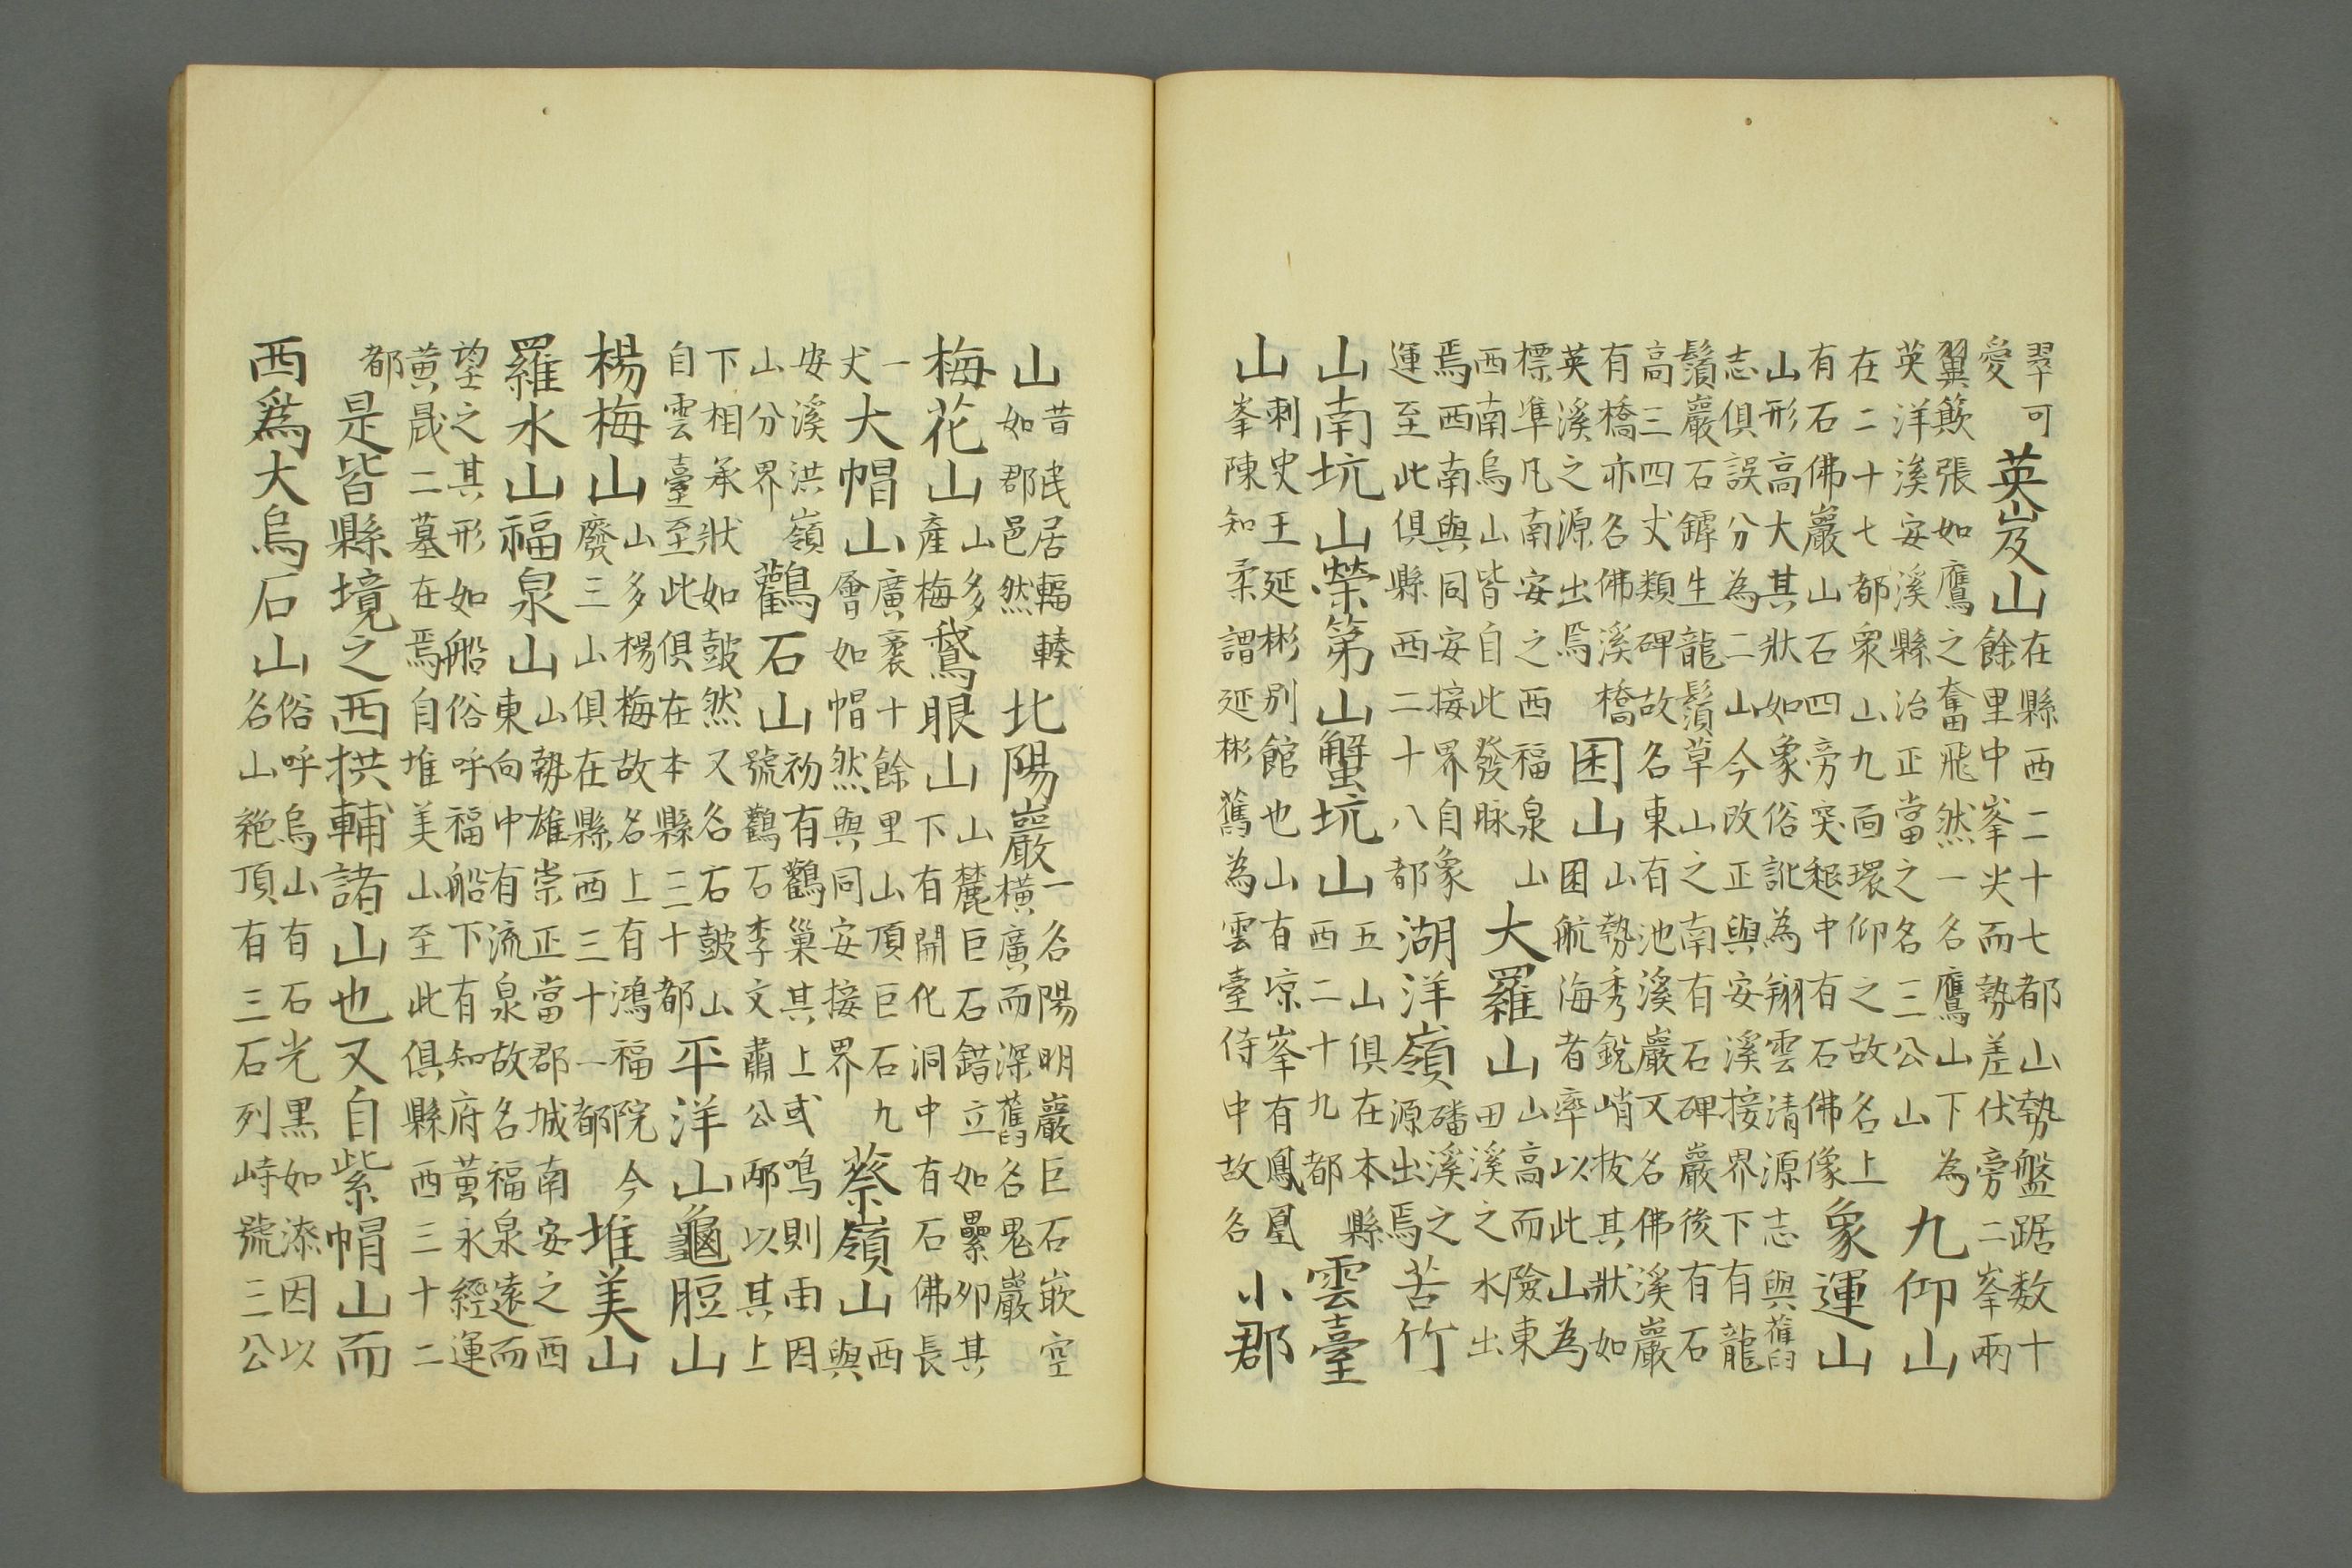 翠可
愛
英岌山
在縣西二十七都山勢盤踞数十
餘里中峯尖而勢差伏旁二峯兩
翼欻張如鷹之奮飛然一名鷹山下為
英洋溪安溪縣治正當之名三公山
九仰山
在二十七都衆山九面環仰之故名上
有石佛巖山石四旁突起中有石佛像
象運山
山形高大其狀如象俗訛為翔雲清源志與舊
志俱誤分為二山今改正與安溪接界下有龍
鬚巖石鏬生龍鬚草山之南有石碑巖後有石
高三四丈類碑故名東有池溪巖又名佛溪巖
有橋亦名佛溪橋
英溪之源出焉
囷山
山勢秀銳峭拔其狀如
囷航海者率以此山為
標準凡南安之西福泉山
西南烏山皆自此發脉
大羅山
山高而險東
田溪之水出
焉西南與同安接界自象
運至此俱縣西二十八都
湖洋嶺
磻溪之
源出焉
苦竹
山南坑山榮第山蟹坑山
五山俱在本縣
西二十九都
雲臺
山
刺史王延彬別館也山有凉峯有鳳凰
峯陳知柔謂延彬舊為雲臺侍中故名
小郡
山
昔民居輻輳
如郡邑然
北陽巖
一名陽明巖巨石嵌空
橫廣而深舊名鬼巖
梅花山
山多
產梅
鵞眼山
山麓巨石錯立如纍卵其
下有開化洞中有石佛長
一
丈
大帽山
廣袤十餘里山頂巨石九
層如帽然與同安接界
蔡嶺山
西
與
安溪洪嶺
山分界
鸛石山
初有鸛巢其上或鳴則雨因
號鸛石李文肅公邴以其上
下相承狀如鼓然又名石鼓山
自雲臺至此俱在本縣三十都
平洋山龜脰山
楊梅山
山多楊梅故名上有鴻福院今
廢三山俱在縣西三十一都
堆美山
羅水山福泉山
山勢雄崇正當郡城南安之西
東向中有流泉故名福泉遠而
望之其形如船俗呼福船下有知府黃永經運
黃晟二墓在焉自堆美山至此俱縣西三十二
都
是皆縣境之西拱輔諸山也又自紫帽山而
西爲大烏石山
俗呼烏山有石光黒如漆因以
名山絶頂有三石列峙號三公